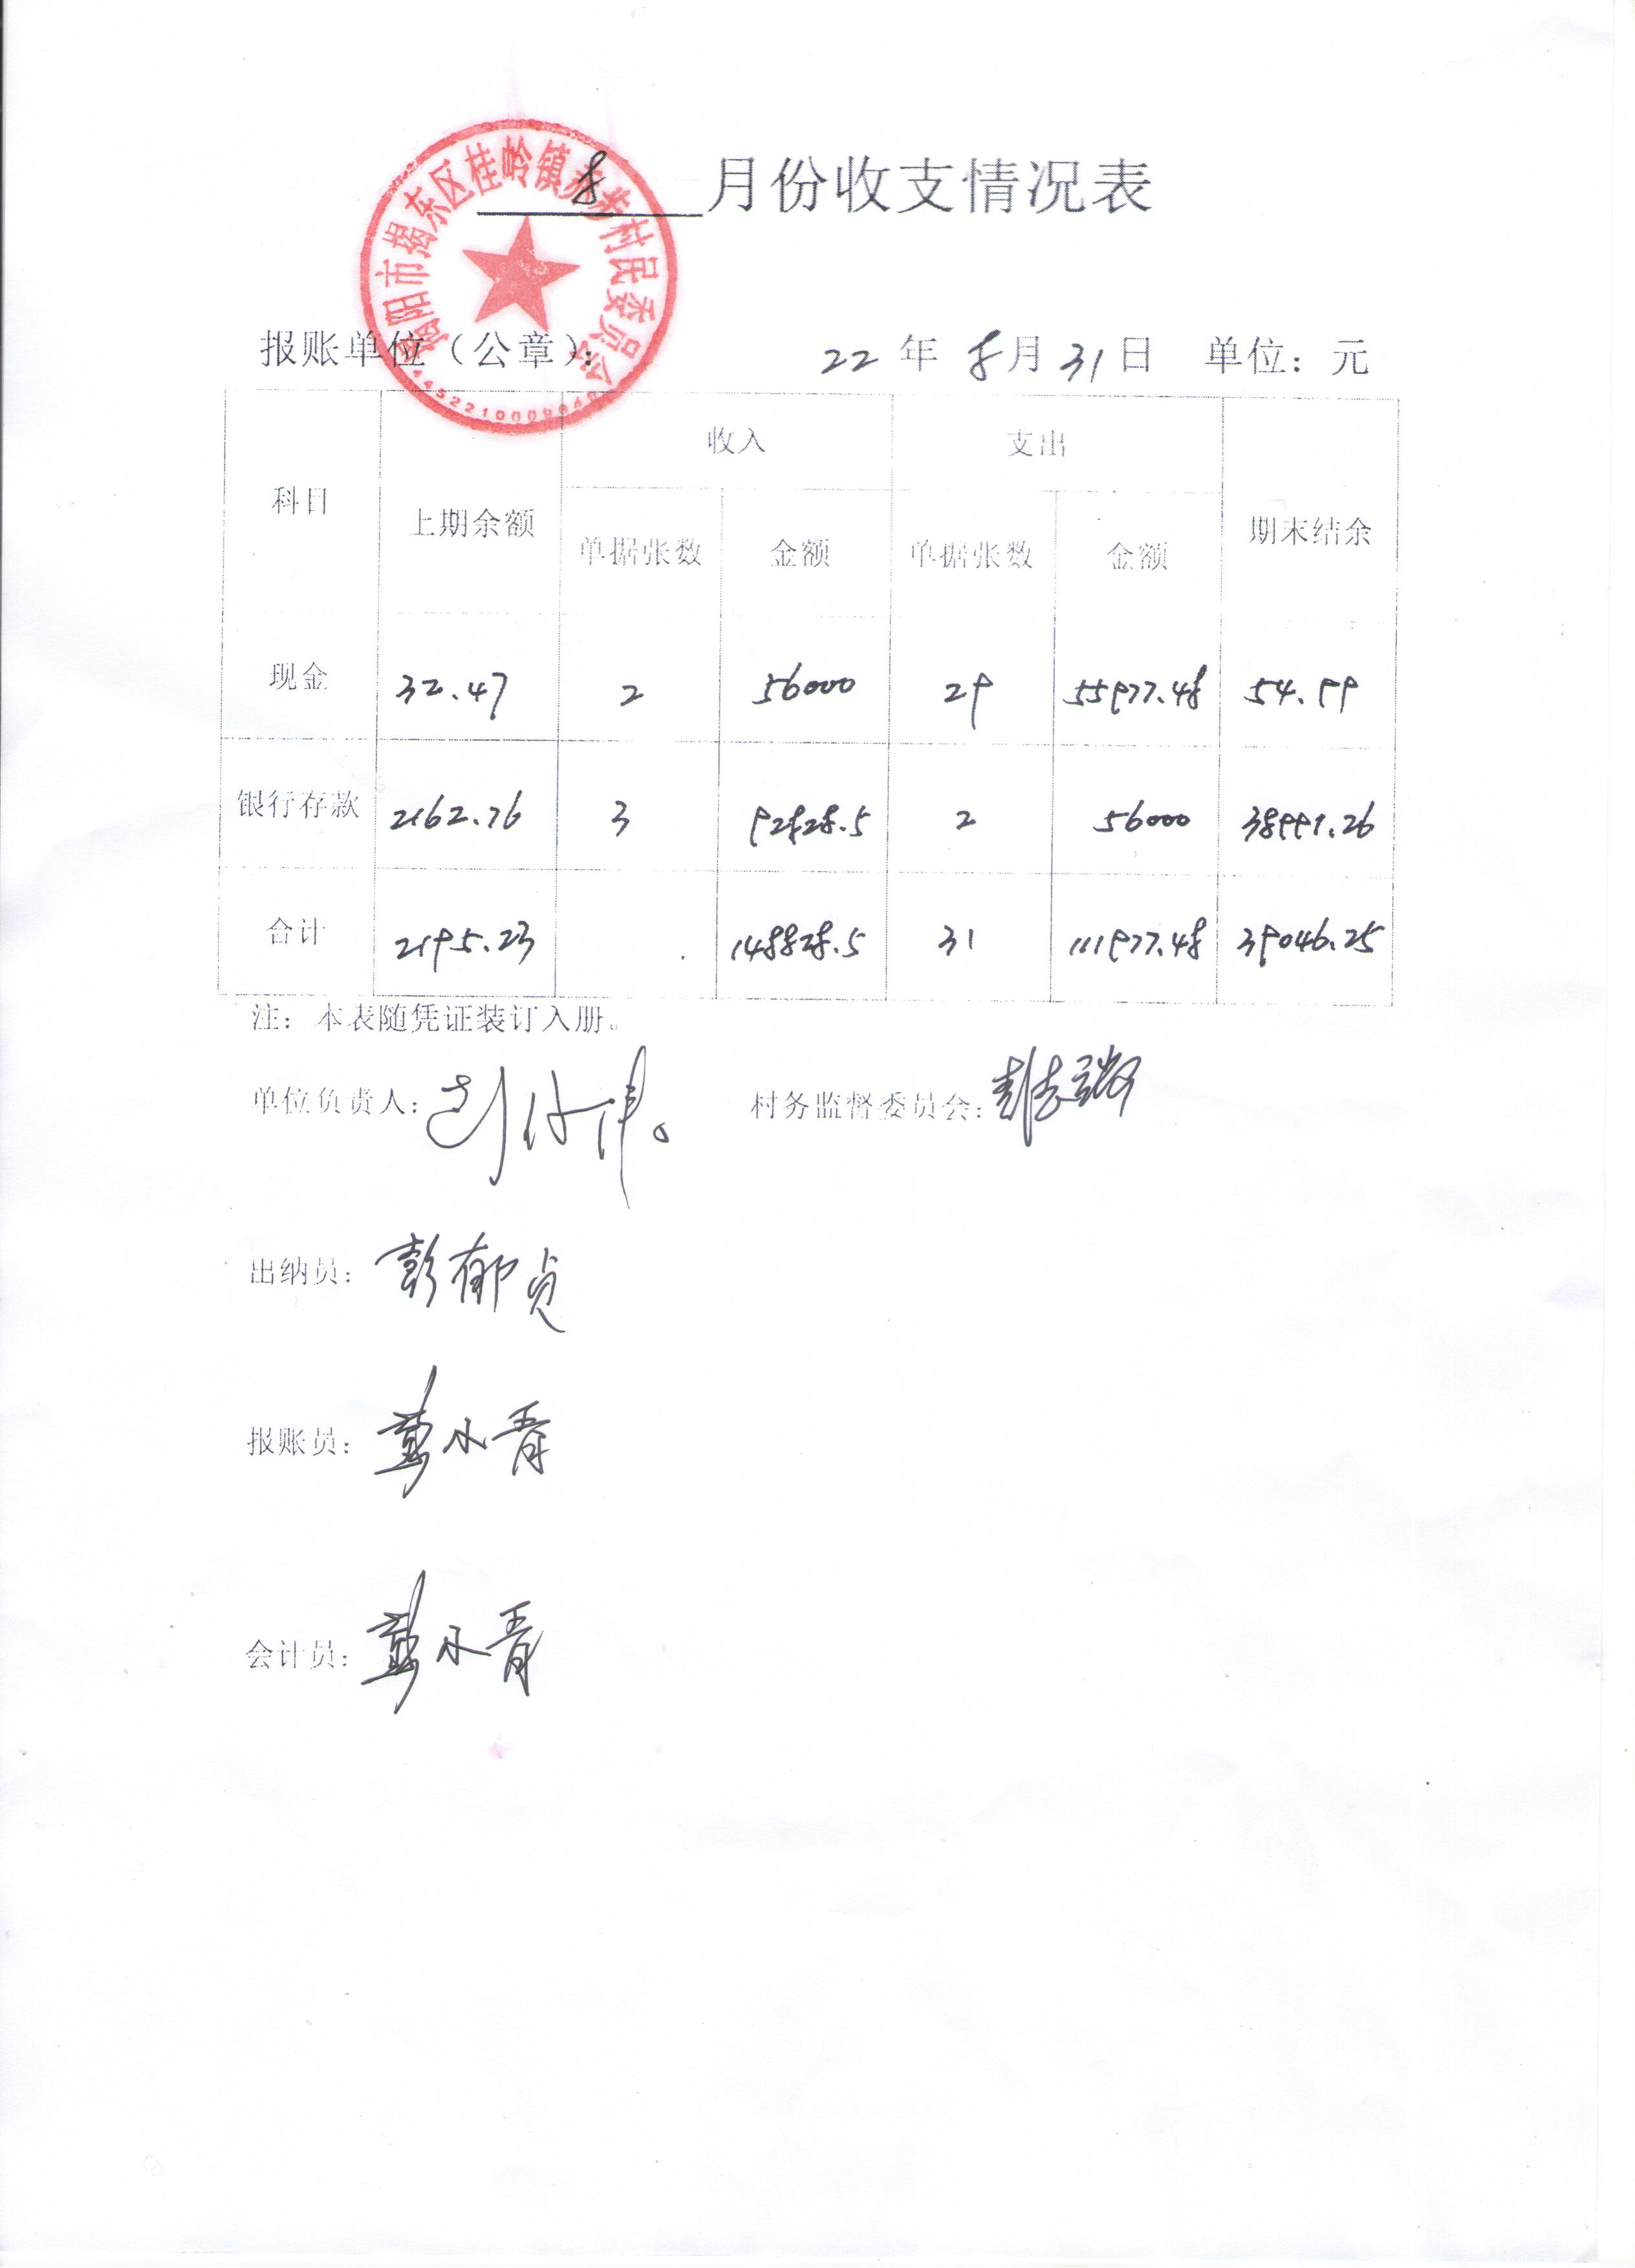 8月份收支情况表
揭阳市揭东区桂岭镇赤步村民委员会
报账单位（公章）： 22年8月31日 单位：元
科目 上期余额 收入 支出 期末结余
单据张数 金额 单据张数 金额
现金 32.47 2 56000 29 55977.48 54.99
银行存款 2162.76 3 92828.5 2 56000 38991.26
合计 2195.23 148828.5 31 111977.48 39046.25
注：本表随凭证装订入册。
单位负责人： 村务监督委员会：
出纳员：彭郁贞
报账员：彭永青
会计员：彭永青